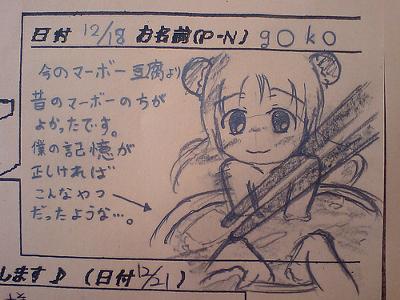 日付 12/18 お名前(P-N) goko
今のマーボー豆腐より
昔のマーボーのちが
よかったです。
僕の記憶が
正しければ
こんなやつ
だったような…。
します♪ (日付12/21)